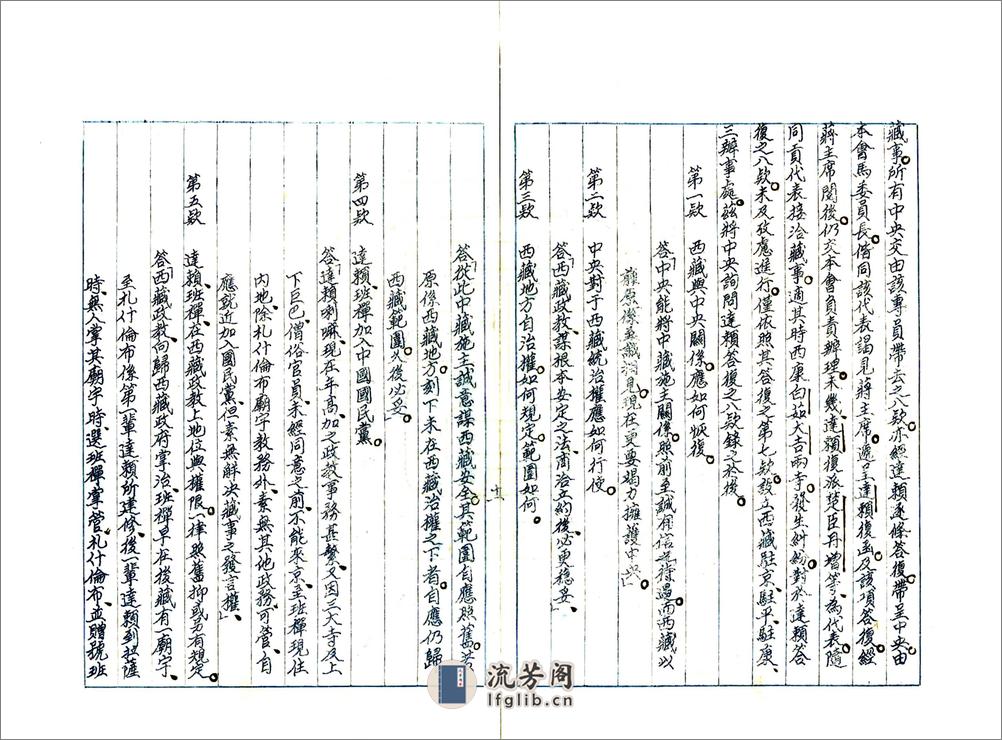 藏事。所有中央交由該專員帶去之八款。亦經達賴逐條答復。帶呈中央。由
本會馬委員長。偕同該代表謁見蔣主席。遞呈達賴復函。及該項答復。經
蔣主席閱後。仍交本會負責辦理。未幾。達賴復派楚臣丹增等。為代表。隨
同貢代表接洽藏事。適其時西康白茹大吉兩寺。發生糾紛。對於達賴答
復之八款。未及攷慮進行。僅依照其答復之第七款。設立西藏駐京、駐平、駐康、
三辦事處。茲將中央詢問達賴答復之八款。錄之於後。
第一款 西藏與中央關係。應如何恢復。
答「中央能將中藏施主關係。照前至誠有信之待遇。而西藏以
前原係至誠相見。現在更要竭力擁護中央。」
第二款 中央對于西藏統治權應如何行使。
答「西藏政教。謀根本安定之法。商洽立約後。必更穩妥。」
第三款 西藏地方自治權。如何規定。範圍如何。
答「從此中藏施主。誠意謀西藏安全。其範圍自應照舊。若
原係西藏地方。刻下未在西藏治權之下者。自應仍歸
西藏範圍。久後必妥。」
第四款 達賴、班禪加入中國國民黨。
答「達賴喇嘛。現在年高。加之政教事務甚繁。又因三大寺及上
下巨巴僧俗官員、未經同意之前。不能來京。至班禪現住
內地。除札什倫布廟宇教務外。素無其他政務可管。自
應就近加入國民黨。但素無解決藏事之發言權。」
第五款 達賴、班禪在西藏政教上地位與權限。一律照舊。抑或另有規定。
答「西藏政教。向歸西藏政府掌治。班禪早在後藏有一廟宇、
至札什倫布、係第一輩達賴所建修。後一輩達賴到拉薩
時。無人掌其廟宇。時選班禪掌管。札什倫布。並贈號班
十
流芳阁
lfglib.cn